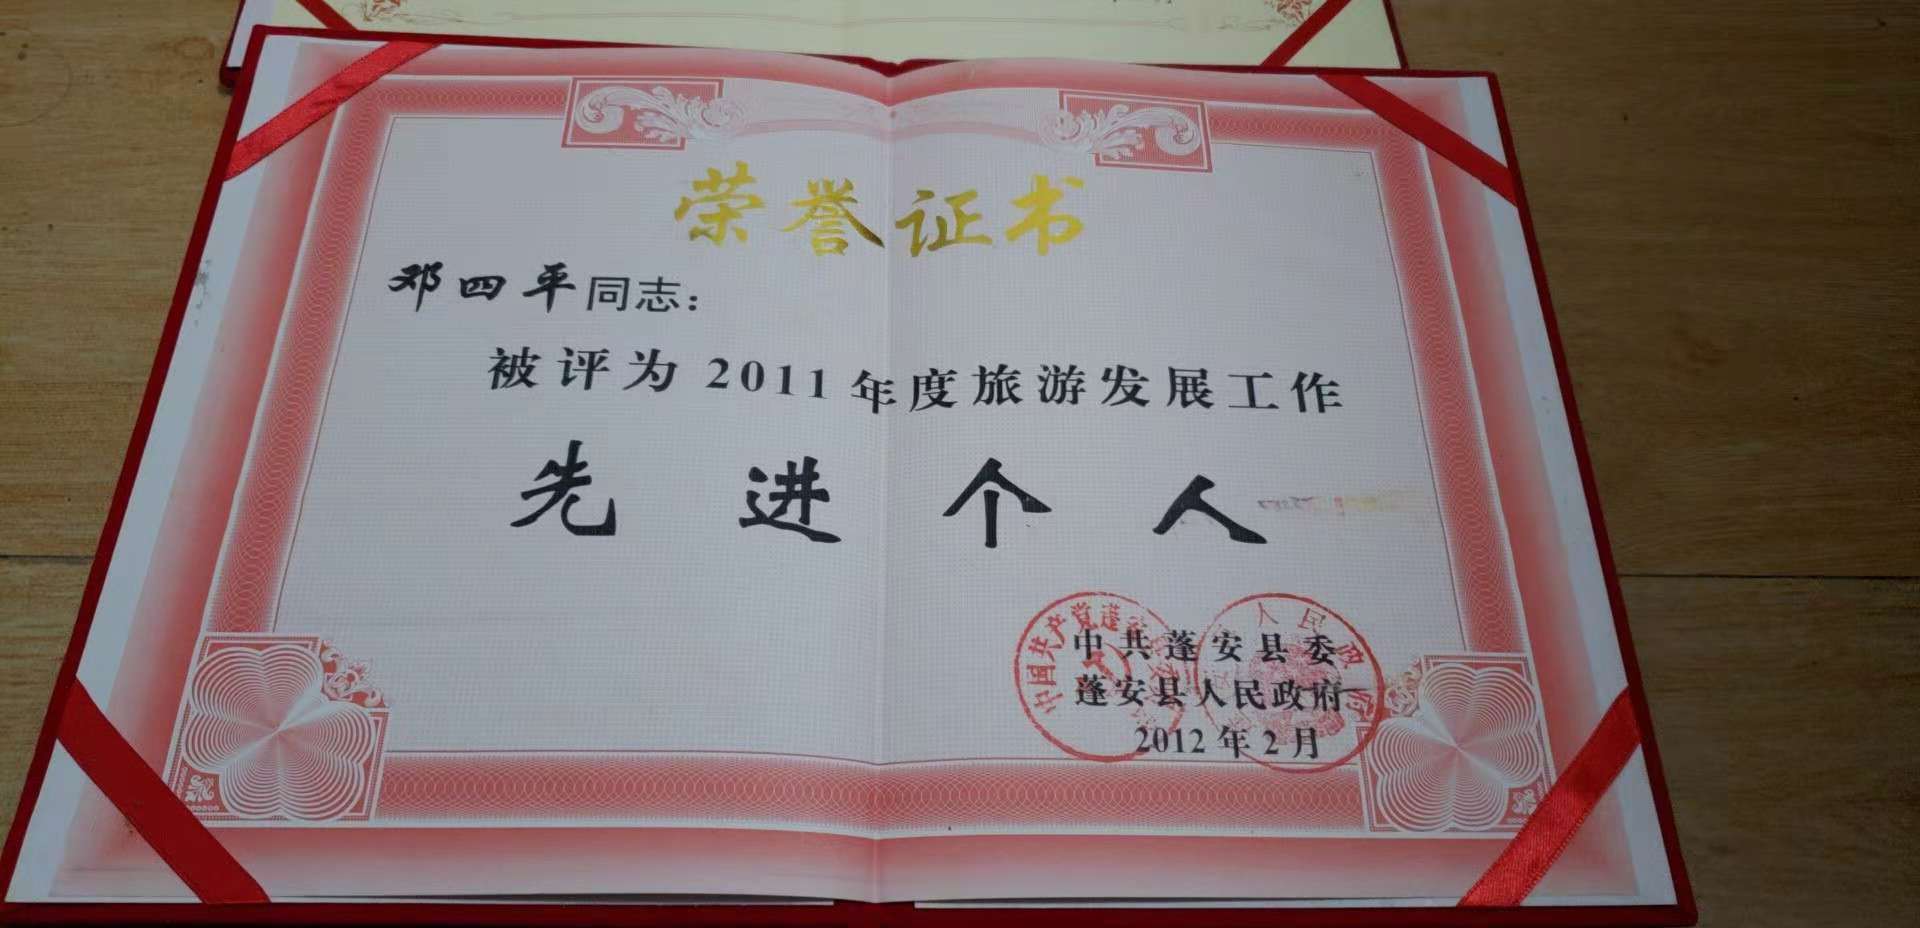 荣誉证书
邓四平同志：
被评为2011年度旅游发展工作
先进个人
中共蓬安县委
蓬安县人民政府
2012年2月
中国共产党蓬
人民政府